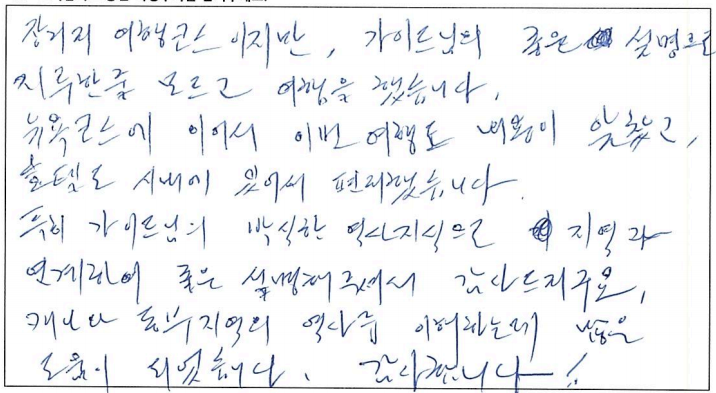 장거리 여행코스 이지만, 가이드님의 좋은 설명으로
지루한줄 모르고 여행을 했습니다.
뉴욕코스에 이어서 이번 여행도 내용이 알찼고,
호텔도 시내에 있어서 편리했습니다.
특히 가이드님의 박식한 역사지식으로 지역과
연계하여 좋은 설명해주셔서 감사드리구요,
캐나다 동부지역의 역사를 이해하는데 많은
도움이 되었습니다. 감사합니다―!